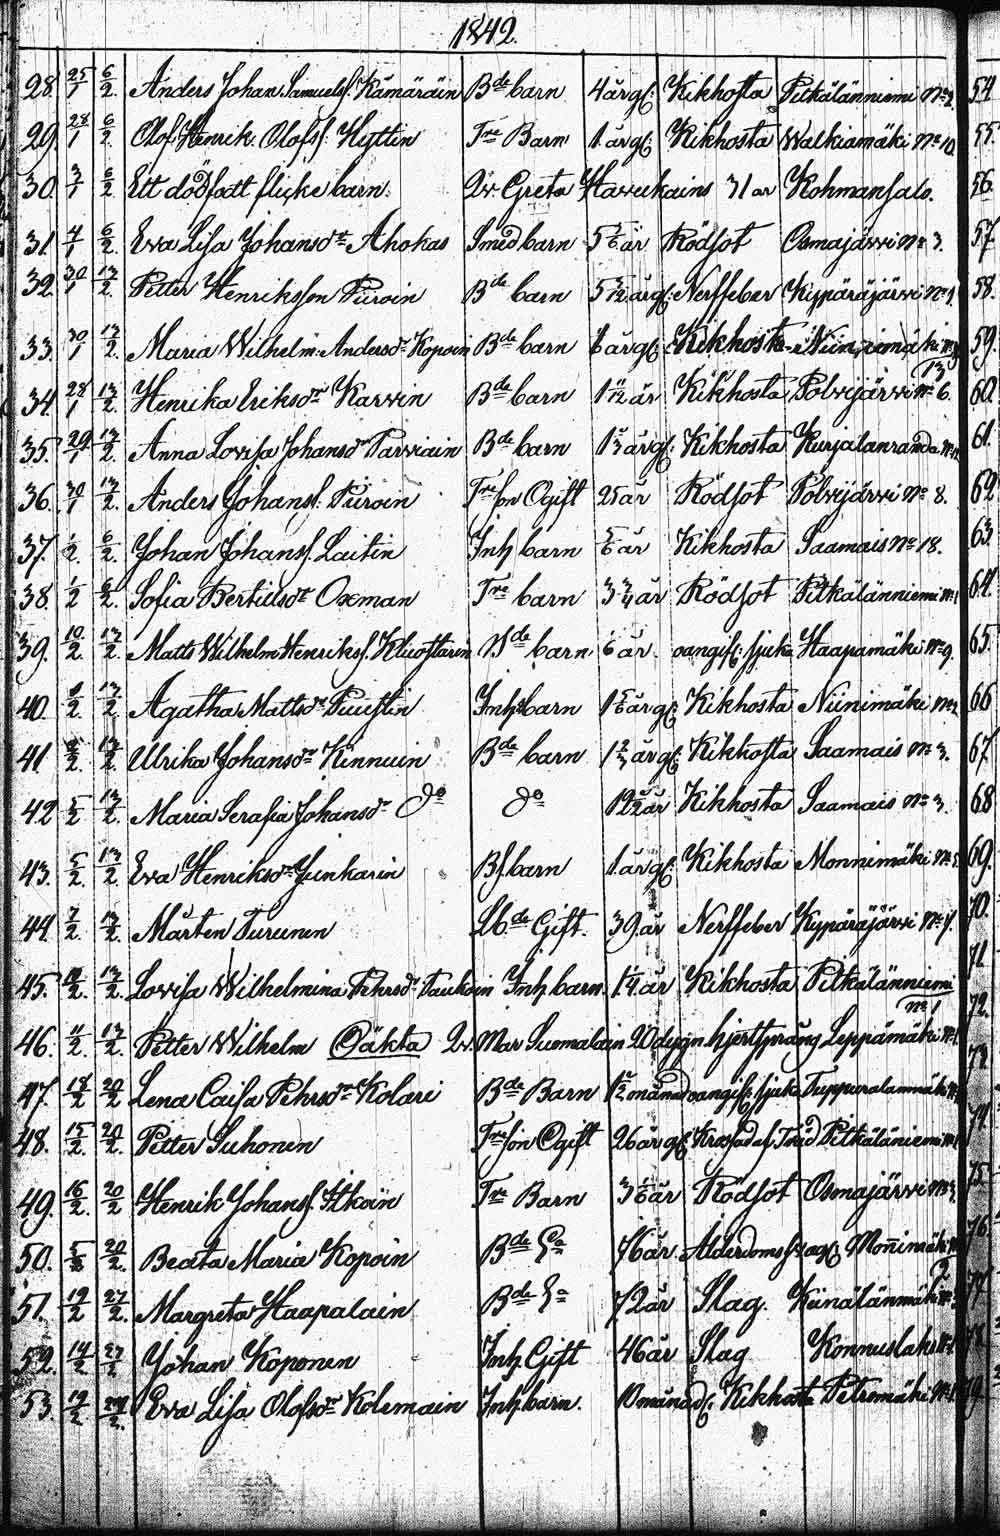 1842.
28. 25/1 6/2. Anders Johan Samuelsf. Kämäräin Bde barn 4 årgl. Kikhosta Pitkälänniemi No 2.
29. 28/1 6/2. Olof Henrik Olofsf. Hyttin Tre Barn 1 årgl. Kikhosta Walkiamäki No 10.
30. 3/1 6/2. Ett dödfödt flicke barn. Qv. Greta Haverikains 31 år Kohmansalo.
31. 4/1 6/2. Eva Lisa Johansdr Ahokas Smed barn 5 1/6 år Rödsot Osmajärvi No 3.
32. 30/1 13/2. Petter Henriksson Piiroin Bde barn 5 3/12 årgl. Nerffeber Kypäräjärvi No
33. 30/1 13/2. Maria Wilhelm. Andersdr Kopoin Bde barn årgl. Kikhosta Niinimäki No 13
34. 28/1 13/2. Henrika Eriksdr Karvin Bde barn 1 11/12 år Kikhosta Polvijärvi No 6.
35. 29/1 13/2. Anna Lovisa Johansdr Parviain Bde barn 1 1/3 årgl. Kikhosta Kurjalanranda No
36. 30/1 13/2. Anders Johansf. Piiroin Tre son Ogift 25 år Rödsot Polvijärvi No 8.
37. 1/2. 6/2. Johan Johansf. Laitin Inh barn 5/6 år Kikhosta Saamais No 18.
38. 1/2 6/2. Sofia Bertilsdr Oxman Tre barn 3 3/4 år Rödsot Pitkälänniemi No 1
39. 10/2. 13/2. Matts Wilhelm Henriksf. Bde barn 1/6 år. oangifl. sjuka Haapamäki No 9.
40. 13/2. Agatha Mattsdr Puustin Inh barn 1 5/6 årgl. Kikhosta Niinimäki No 2
41 13/2. Ulrika Johansdr Kinnuin Bde barn 1 2/3 årgl. Kikhosta Saamais No 3.
42 5/2 13/2. Maria Serafia Johansdr do do år Kikhosta Saamais No 3.
43. 5/2. 13/2. Eva Henriksdr Junkarin Bf barn 1 årgl. Kikhosta Monnimäki No
44 7/2. 13/2. Mårten Turunen Lbde Gift. 39 år Nerffeber Kypäräjärvi No 7.
45. 13/2. Lovisa Wilhelmina Pehrsdr Taukoin Inh barn. 1 1/4 år Kikhosta Pitkälänniemi No 1
46. 11/2. 13/2. Petter Wilhelm Oäkta Qv. Mar Suomalain 20 dygn hjertsprång Leppämäki No 1.
47. 18/2 20/2 Lena Caisa Pehrsdr Kolari Bde Barn månad oangifl. sjuka Tuppuralanmäki
48. 15/2. 20/2. Petter Suhonen Tre son Ogift 26 år gl. Krossad af Träd Pitkäläniemi No
49. 16/2. 20/2 Henrik Johansf. Itkoin Tre Barn 3 1/6 år Rödsot Osmajärvi No 3
50. 20/2. Beata Maria Kopoin Bde Ea 76 år Ålderdoms svagl. Monnimäki No 2
51. 12/2 27/2. Margreta Haapalain Bde Ea 72 år Slag. Keinälänmäki No
52. 14/2 27/2 Johan Koponen Inh Gift 46 år Slag Konnuslaks No
53 19/2 27/2. Eva Lisa Olofsdr Kolemain Inh barn. 10 månad gl. Kikhosta Petromäki No 1.
54
55.
56
57
58.
59.
60
61.
62
63
64.
65.
66
67.
68
69.
70.
71
72.
73.
74.
75
76
77
78
79